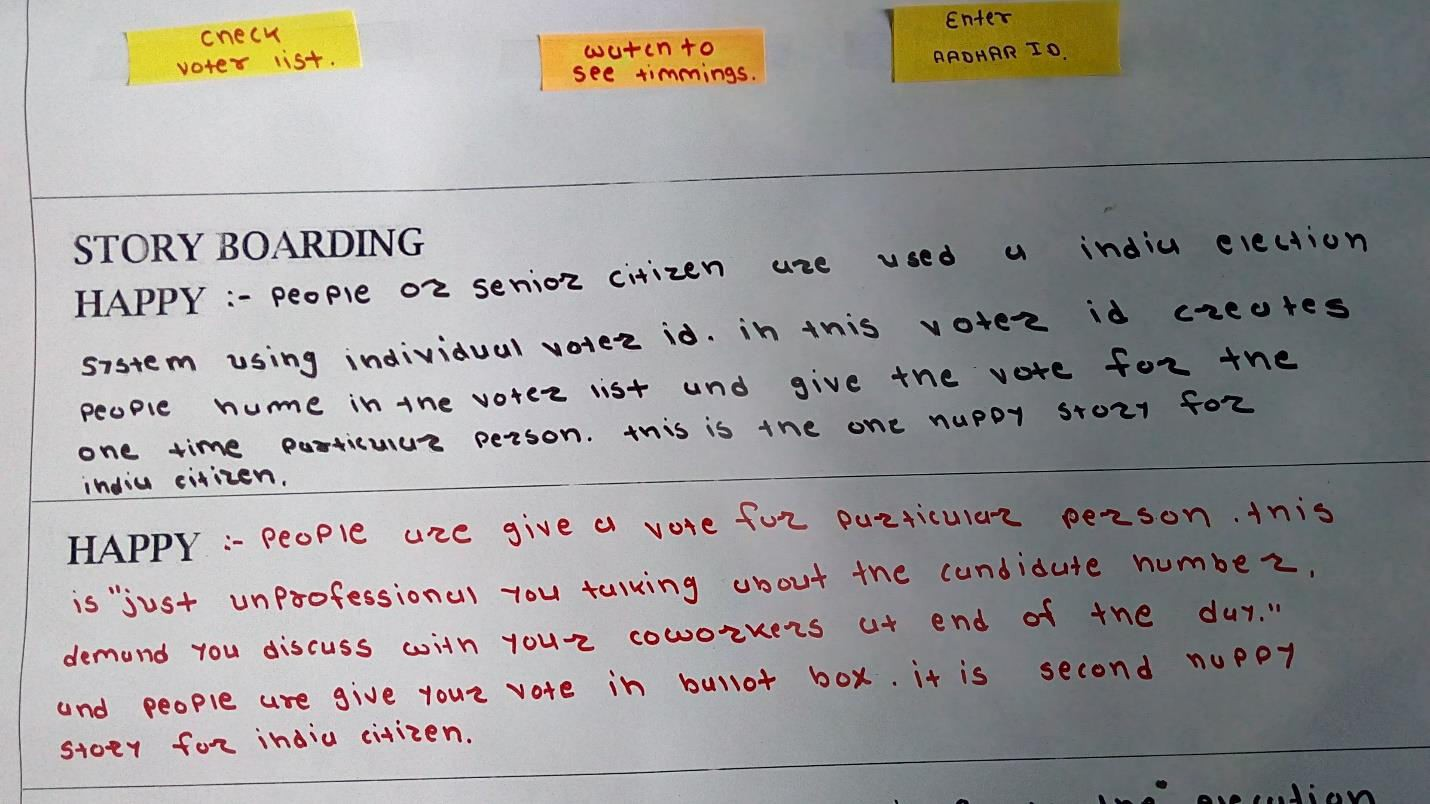 check
voter list.
watch to
see timmings.
Enter
AADHAR ID.
STORY BOARDING
HAPPY :- people or senior citizen are used a india election
system using individual voter id. in this voter id creates
people name in the voter list and give the vote for the
one time particular person. this is the one happy story for
india citizen.
HAPPY :- people are give a vote for particular person. this
is "just unprofessional you talking about the candidate number,
demand you discuss with your coworkers at end of the day."
and people are give your vote in ballot box. it is second happy
story for india citizen.